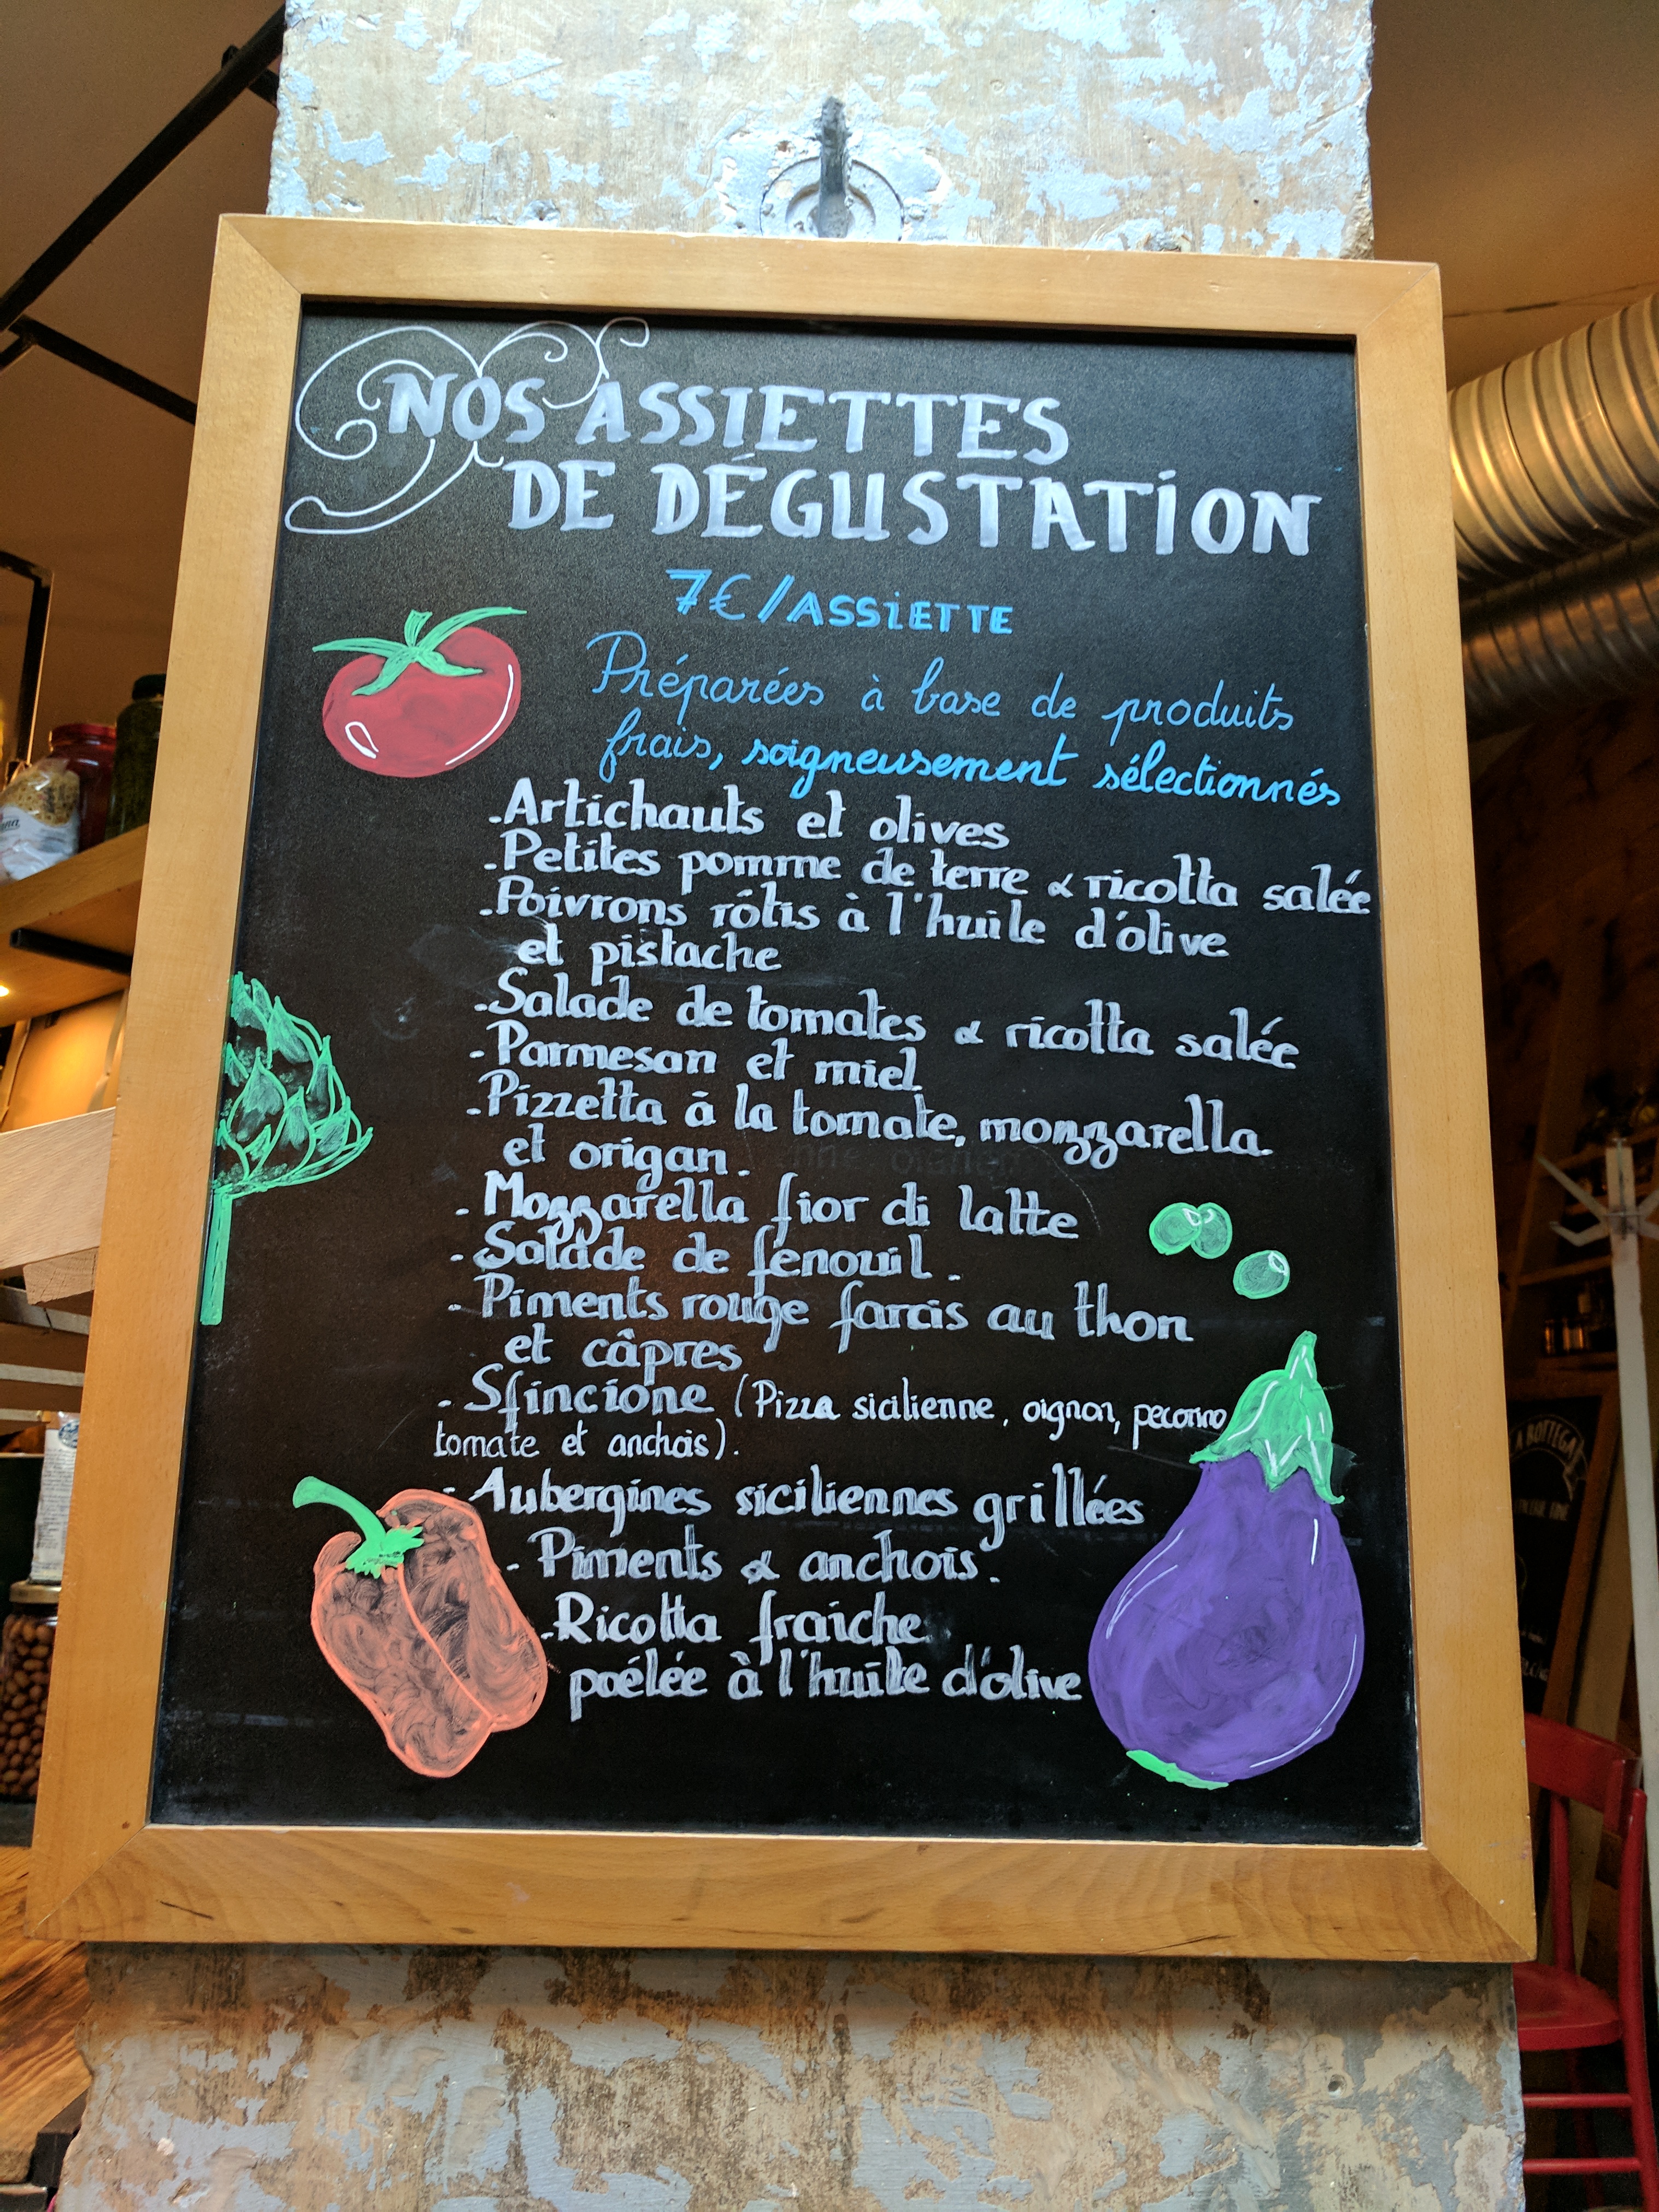 NOS ASSIETTES
DE DÉGUSTATION
7€/ASSIETTE
Préparées à base de produits
frais, soigneusement sélectionnés
-Artichauts et olives
-Petites pomme de terre & ricotta salée
-Poivrons rôtis à l'huile d'olive
et pistache
-Salade de tomates & ricotta salée
-Parmesan et miel
-Pizzetta à la tomate, mozzarella
et origan.
-Mozzarella fior di latte
-Salade de fenouil.
-Piments rouge farcis au thon
et câpres
-Sfincione (Pizza sicilienne, oignon, pecorino
tomate et anchois).
-Aubergines siciliennes grillées
-Piments & anchois.
-Ricotta fraiche
poêlée à l'huile d'olive
BOTTEGA